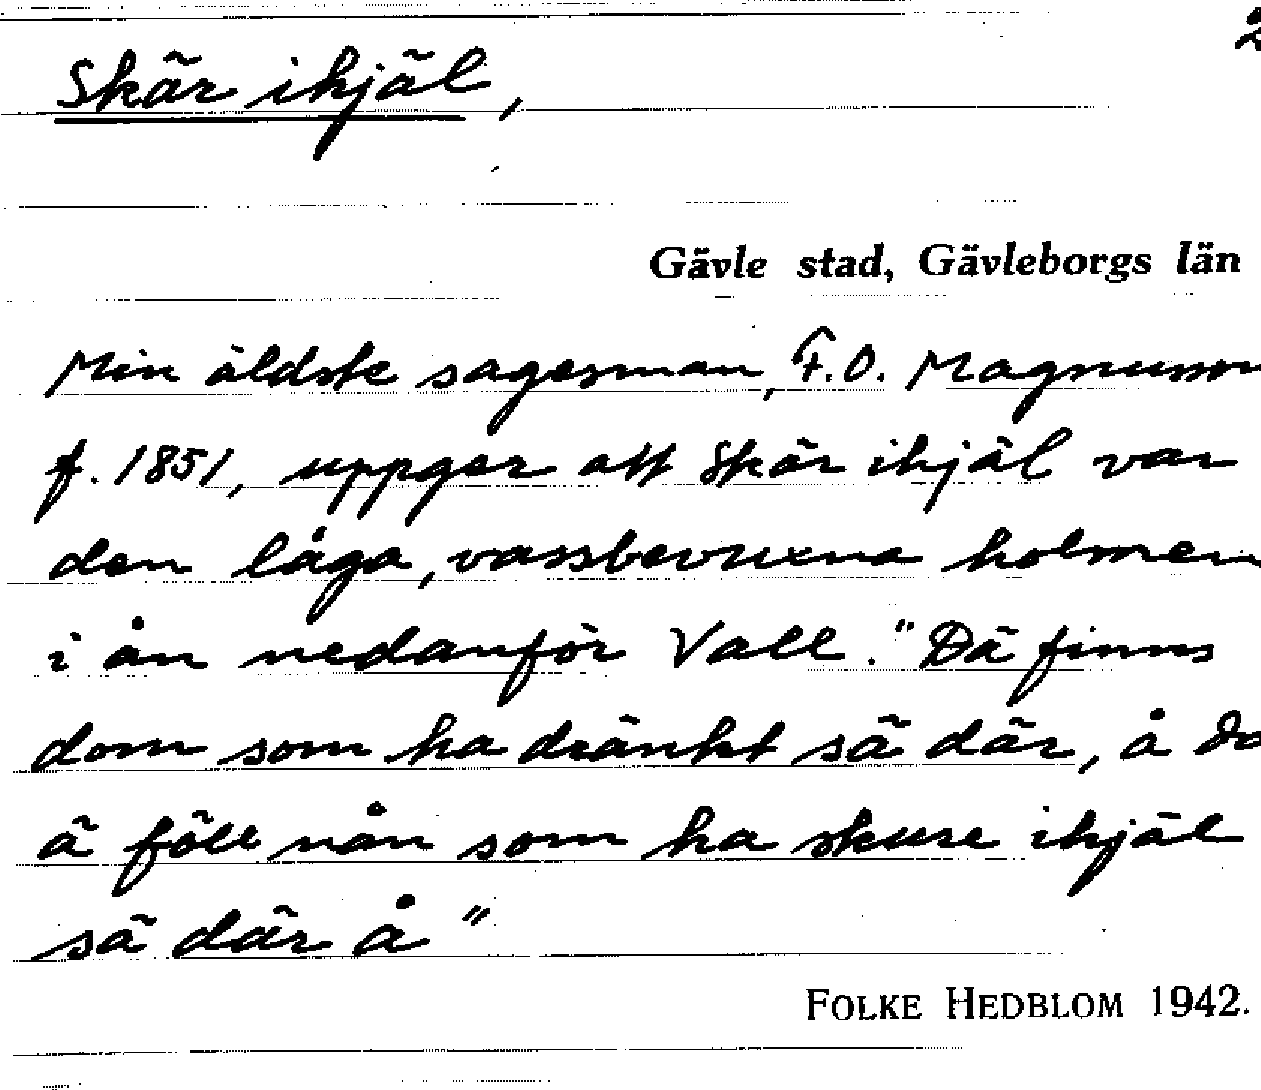 2
Skär ihjäl,
Gävle stad, Gävleborgs län
Min äldste sagesman, F.O. Magnusson
f. 1851, uppger att Skär ihjäl var
den låga, vassbevuxna holmen
i ån nedanför Vall. "Dä finns
dom som ha dränkt sä där, å
ä föll nån som ha skure ihjäl
sä där å"
FOLKE HEDBLOM 1942.